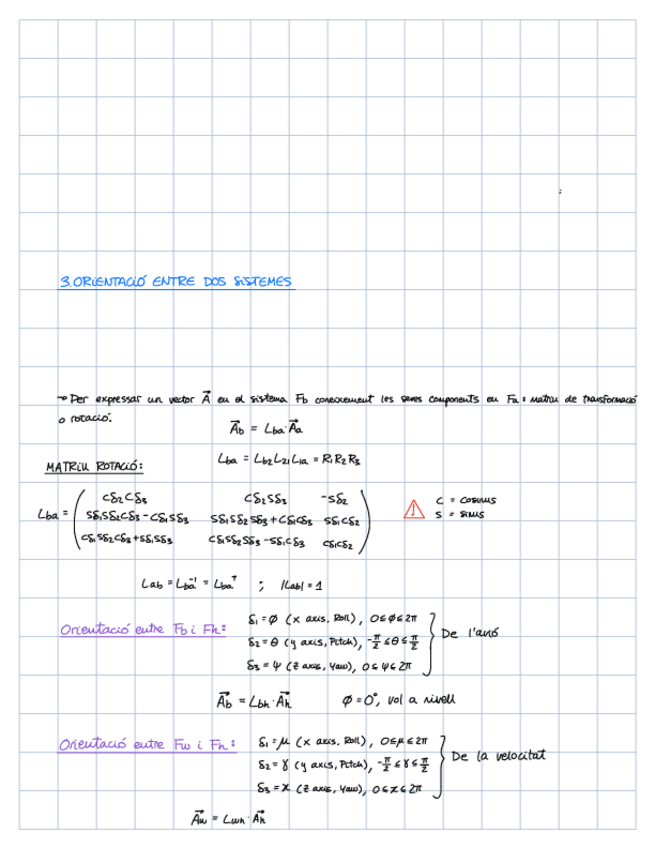 3. ORIENTACIÓ ENTRE DOS SISTEMES
→ Per expressar un vector A⃗ en el sistema Fb coneixement les seves components en Fa: matriu de transformació
o rotació.
A⃗b = Lba·A⃗a
Lba = Lb2 L21 L1a = R1 R2 R3
MATRIU ROTACIÓ:
Lba = ( cδ2cδ3 cδ2sδ3 -sδ2
sδ1sδ2cδ3 - cδ1sδ3 sδ1sδ2sδ3 + cδ1cδ3 sδ1cδ2
cδ1sδ2cδ3 + sδ1sδ3 cδ1sδ2sδ3 - sδ1cδ3 cδ1cδ2 )
C = cosinus
S = sinus
Lab = Lba⁻¹ = Lbaᵀ ; |Lab| = 1
Orientació entre Fb i Fh:
δ1 = ϕ (x axis, Roll), 0≤ϕ≤2π
δ2 = θ (y axis, Pitch), -π/2 ≤ θ ≤ π/2
δ3 = ψ (z axis, Yaw), 0≤ψ≤2π
De l'avió
A⃗b = Lbh·A⃗h ϕ = 0°, vol a nivell
Orientació entre Fw i Fh:
δ1 = μ (x axis, Roll), 0≤μ≤2π
δ2 = γ (y axis, Pitch), -π/2 ≤ γ ≤ π/2
δ3 = χ (z axis, Yaw), 0≤χ≤2π
De la velocitat
A⃗w = Lwh·A⃗h